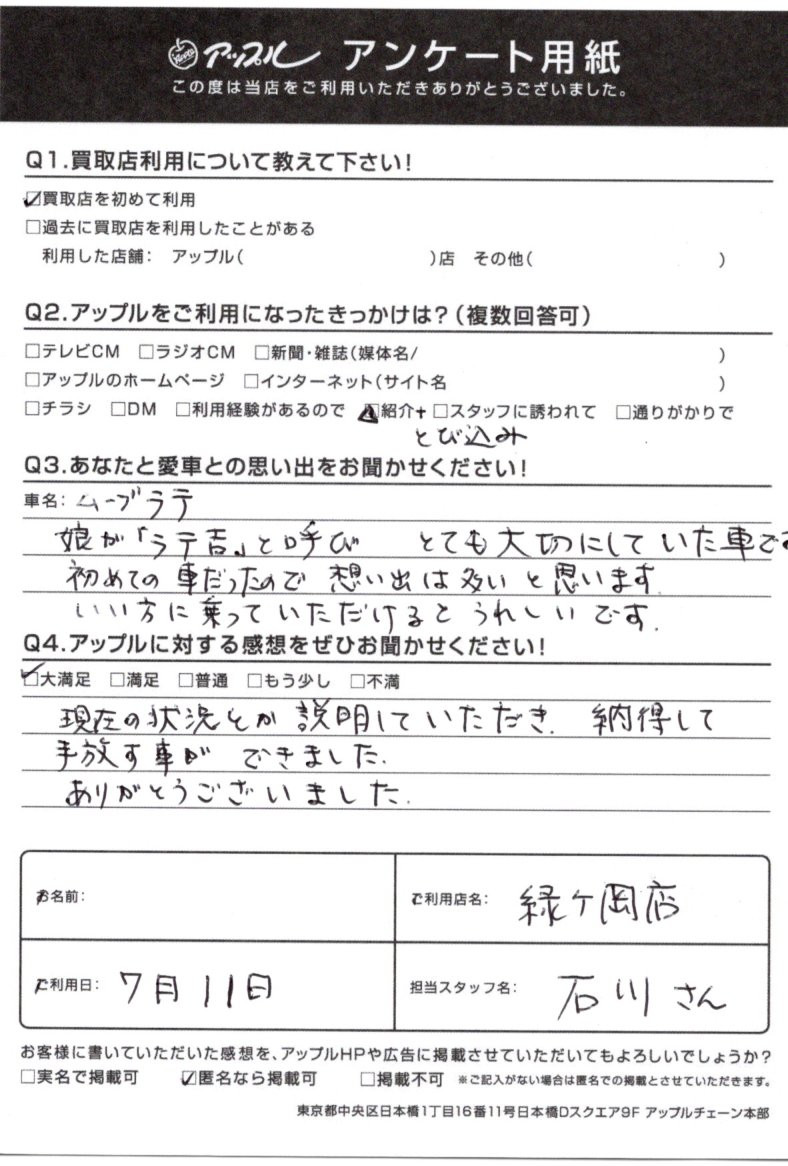 アップル アンケート用紙
この度は当店をご利用いただきありがとうございました。
Q1.買取店利用について教えて下さい!
☑買取店を初めて利用
□過去に買取店を利用したことがある
利用した店舗: アップル( )店 その他( )
Q2.アップルをご利用になったきっかけは?(複数回答可)
□テレビCM □ラジオCM □新聞・雑誌(媒体名/ )
□アップルのホームページ □インターネット(サイト名 )
□チラシ □DM □利用経験があるので ☑紹介+ □スタッフに誘われて □通りがかりで
とび込み
Q3.あなたと愛車との思い出をお聞かせください!
車名: ムーブラテ
娘が「ラテ吉」と呼び とても大切にしていた車です
初めての車だったので 想い出は多いと思います.
いい方に乗っていただけるとうれしいです.
Q4.アップルに対する感想をぜひお聞かせください!
☑大満足 □満足 □普通 □もう少し □不満
現在の状況とか説明していただき. 納得して
手放す事ができました.
ありがとうございました.
お名前:
ご利用店名: 緑ヶ岡店
ご利用日: 7月11日
担当スタッフ名: 石川さん
お客様に書いていただいた感想を、アップルHPや広告に掲載させていただいてもよろしいでしょうか?
□実名で掲載可 ☑匿名なら掲載可 □掲載不可 ※ご記入がない場合は匿名での掲載とさせていただきます。
東京都中央区日本橋1丁目16番11号日本橋Dスクエア9F アップルチェーン本部